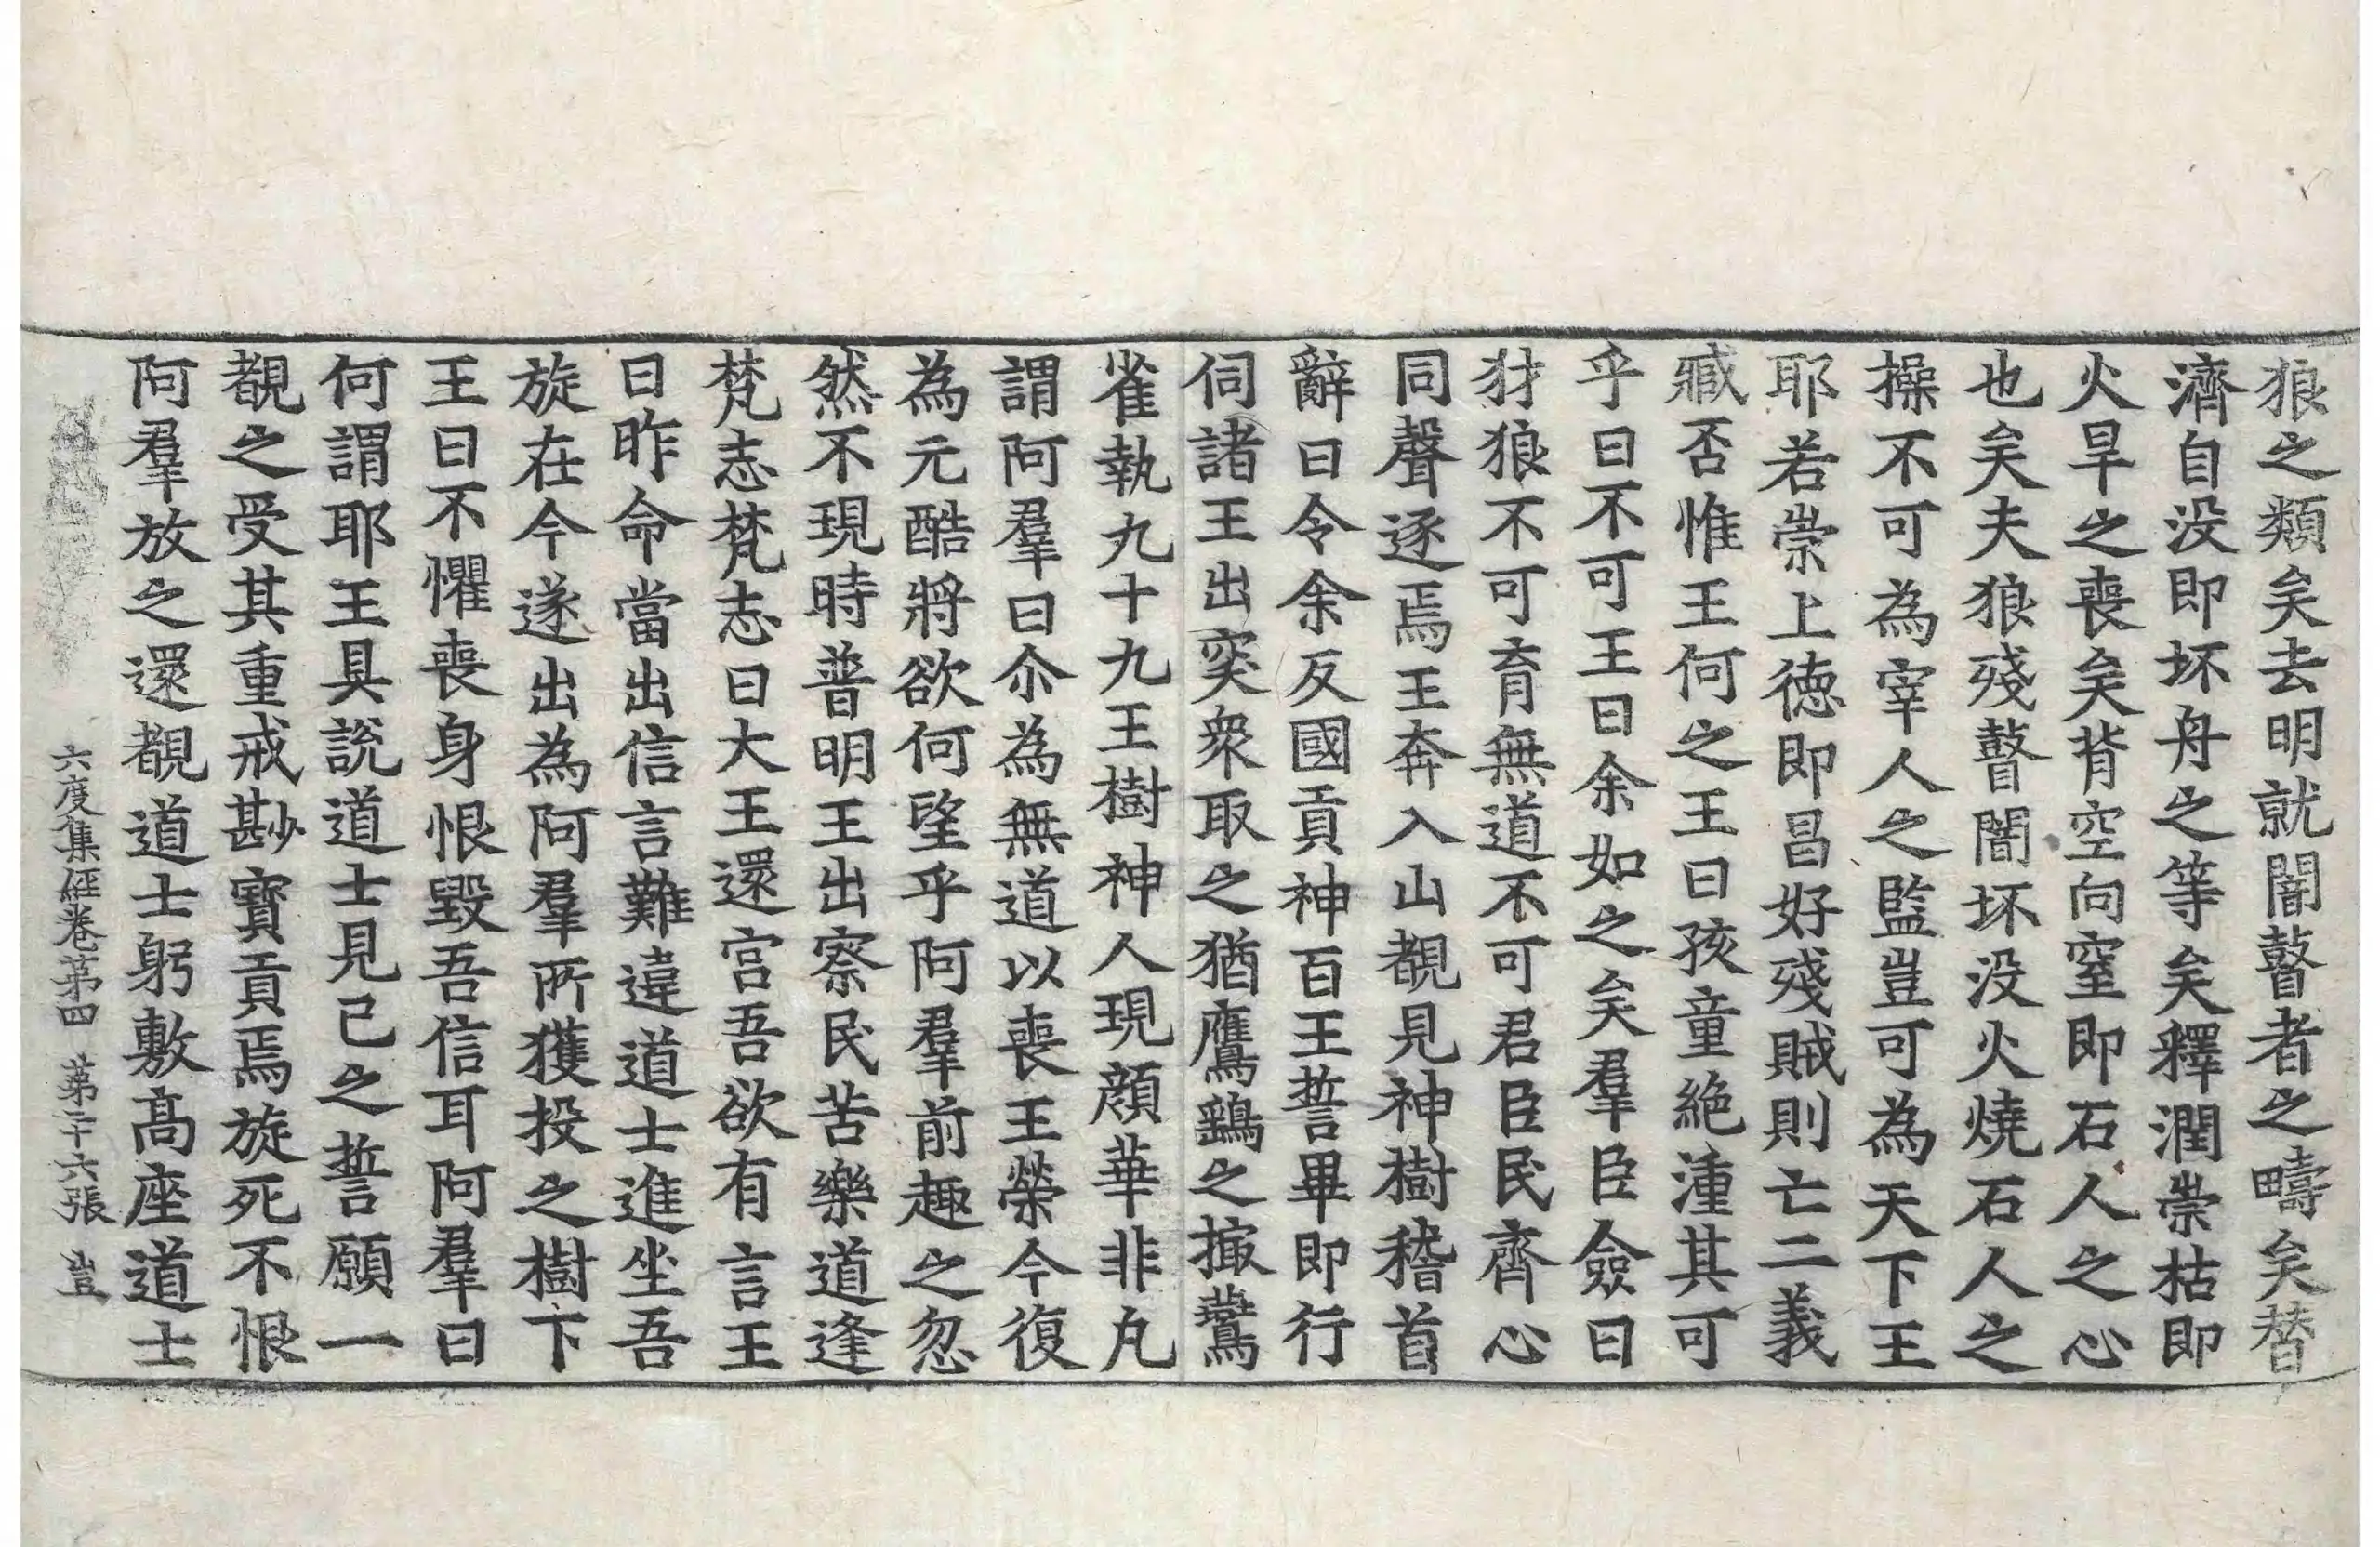 狼之類矣去明就闇瞽者之疇矣替
濟自没即坏舟之等矣釋潤崇枯即
火旱之喪矣背空向窒即石人之心
也矣夫狼殘瞽闇坏没火燒石人之
操不可為宰人之監豈可為天下王
耶若崇上徳即昌好殘賊則亡二義
臧否惟王何之王曰孩童絶湩其可
乎曰不可王曰余如之矣羣臣僉曰
犲狼不可育無道不可君臣民齊心
同聲逐焉王奔入山覩見神樹稽首
辭曰令余反國貢神百王誓畢即行
伺諸王出突衆取之猶鷹鷂之撮鷰
雀執九十九王樹神人現顔華非凡
謂阿羣曰尒為無道以喪王榮今復
為元酷將欲何望乎阿羣前趣之忽
然不現時普明王出察民苦樂道逢
梵志梵志曰大王還宮吾欲有言王
曰昨命當出信言難違道士進坐吾
旋在今遂出為阿羣所獲投之樹下
王曰不懼喪身恨毀吾信耳阿羣曰
何謂耶王具説道士見己之誓願一
覩之受其重戒尠寳貢焉旋死不恨
阿羣放之還覩道士躬敷高座道士
六度集經卷第四 第二十六張 豈